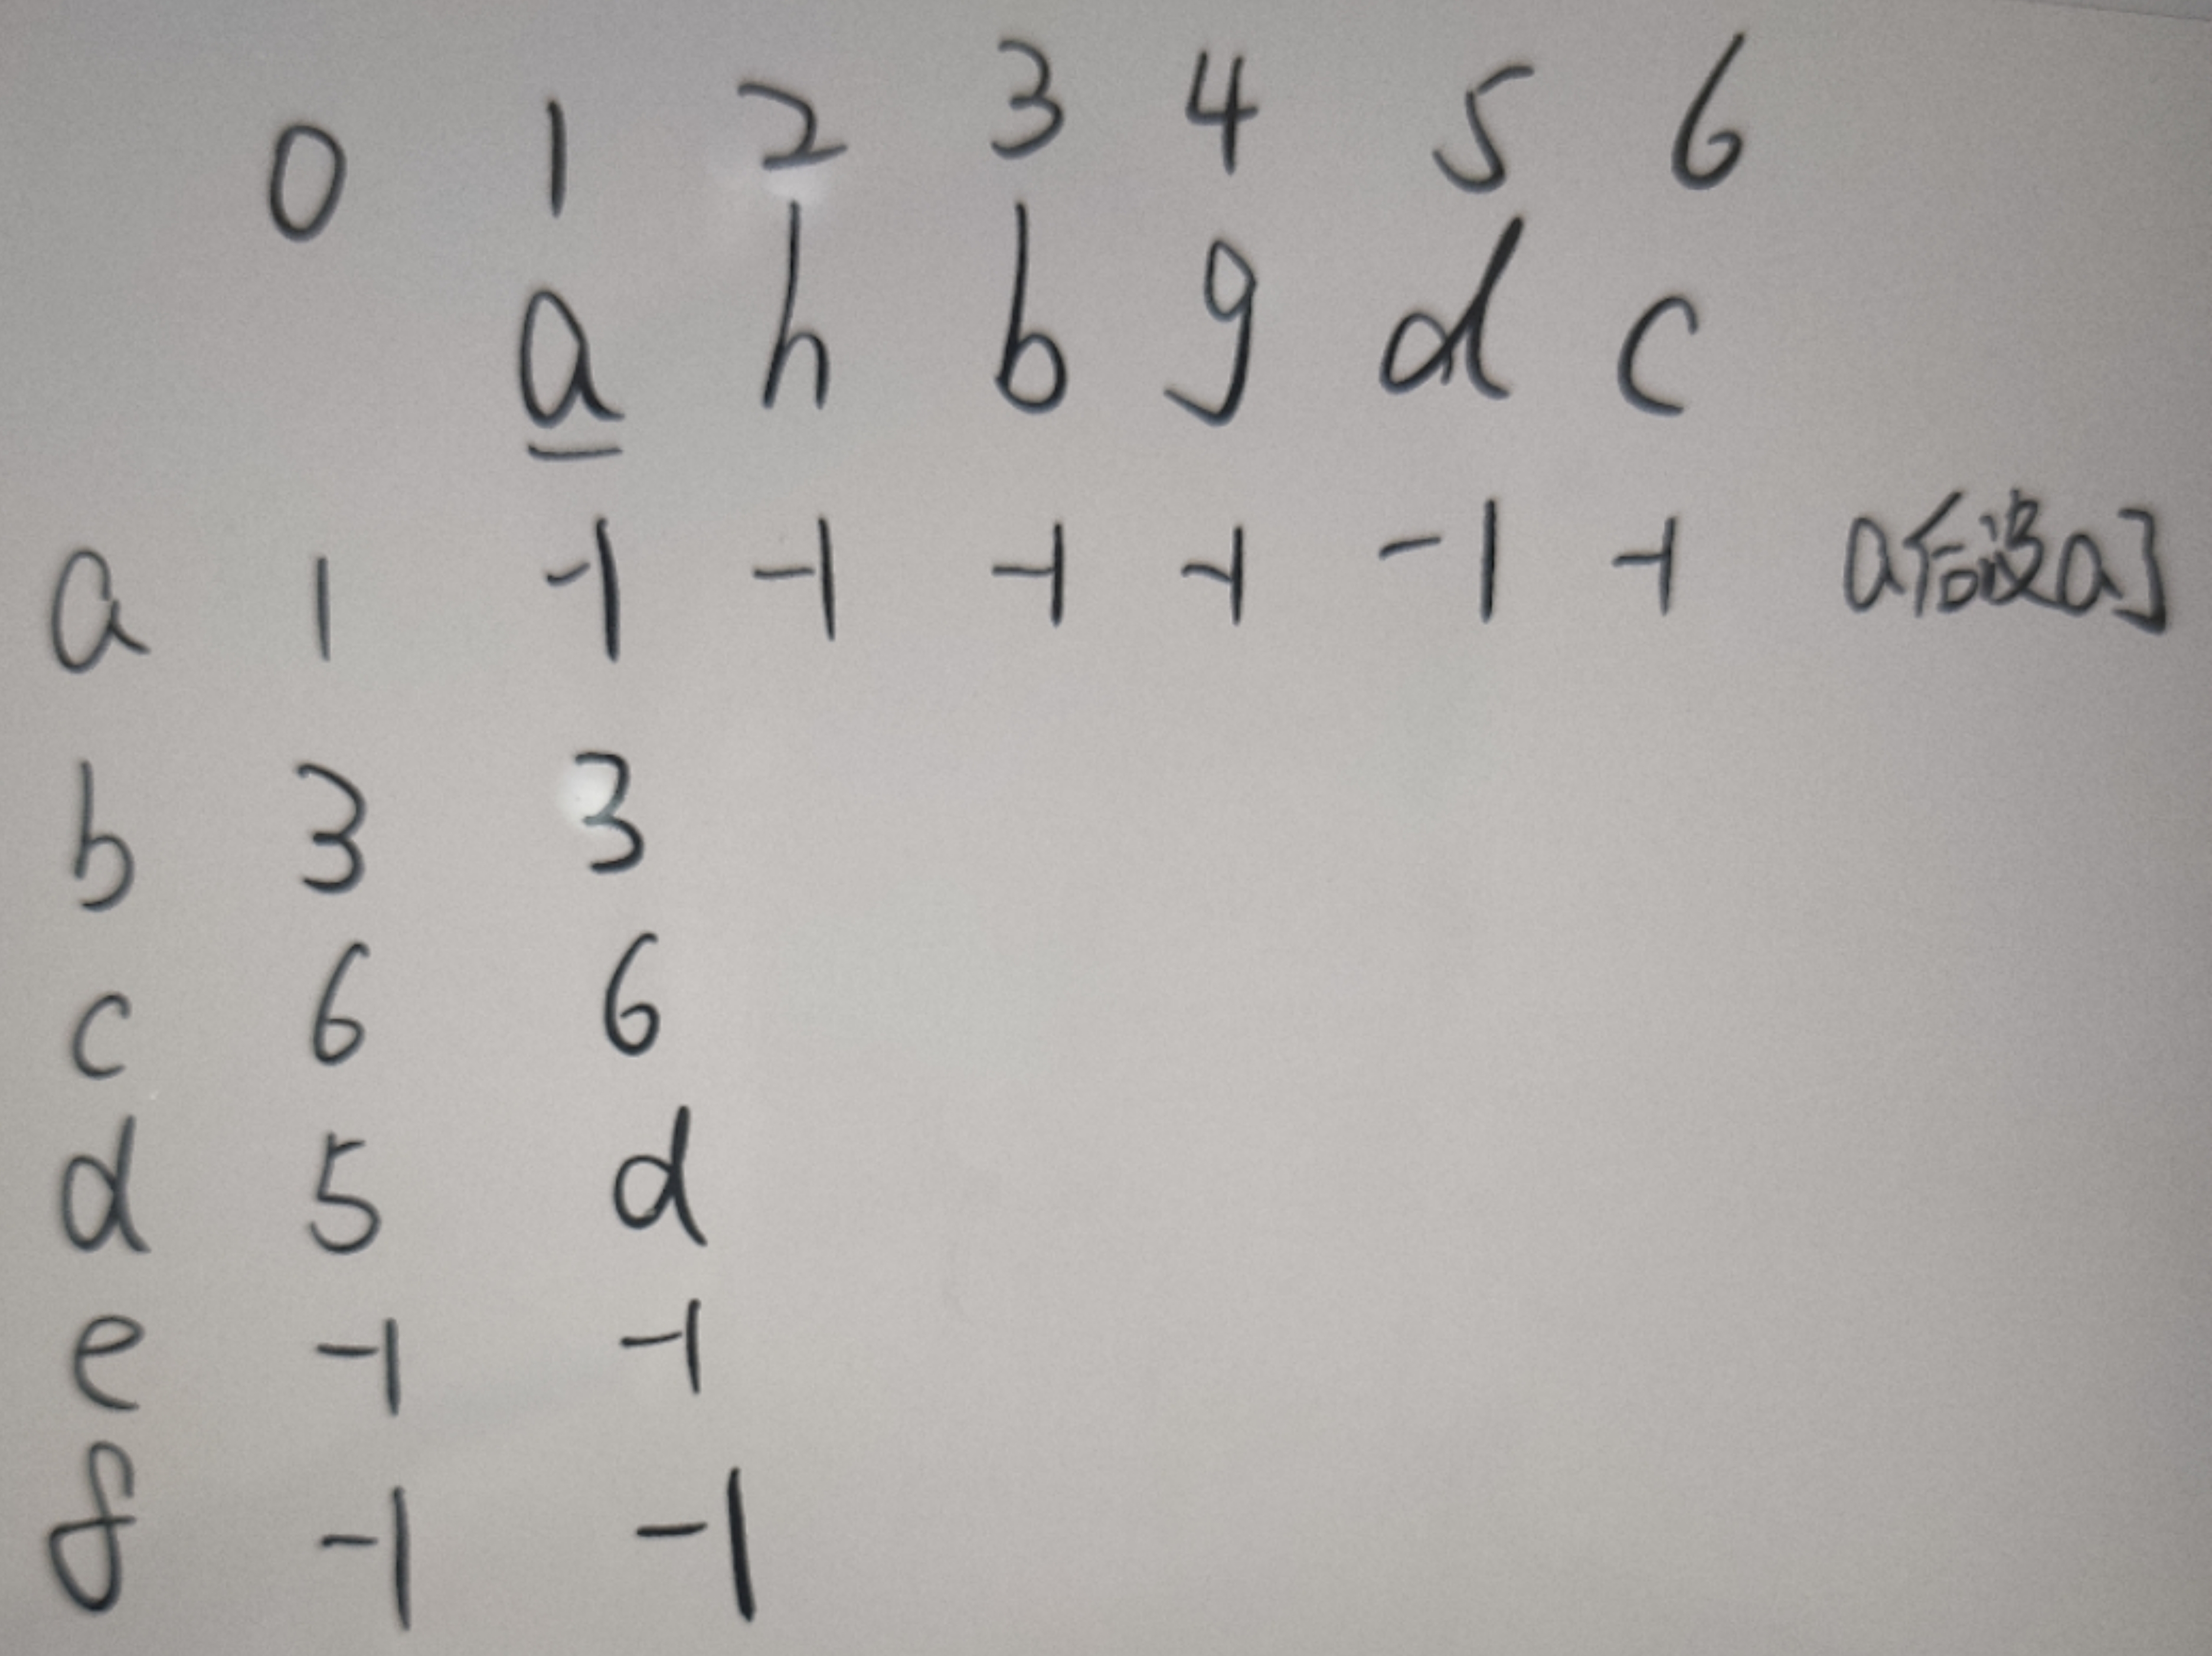 0 1 2 3 4 5 6
a h b g d c
a 1 -1 -1 -1 -1 -1 -1 a后没a了
b 3 3
c 6 6
d 5 d
e -1 -1
f -1 -1